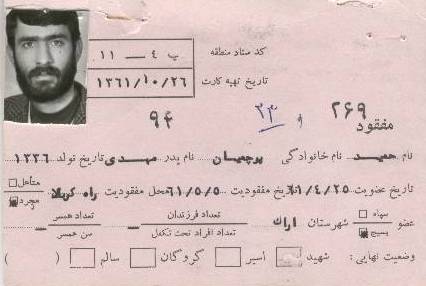 کد ستاد منطقه پ ۴ — ۱۱
تاریخ تهیه کارت ۱۳۶۱/۱۰/۲۶
مفقود ۲۶۹ و ۳۳ ۹۴
نام حمید نام خانوادگی پرچمیان نام پدر مهدی تاریخ تولد ۱۳۳۶
تاریخ عضویت ۶۱/۴/۲۵ تاریخ مفقودیت ۶۱/۵/۵ محل مفقودیت راه کربلا متأهل مجرد
عضو سپاه بسیج شهرستان اراک تعداد فرزندان — تعداد همسر —
تعداد افراد تحت تکفل سن همسر
وضعیت نهایی: شهید اسیر گروگان سالم ( )